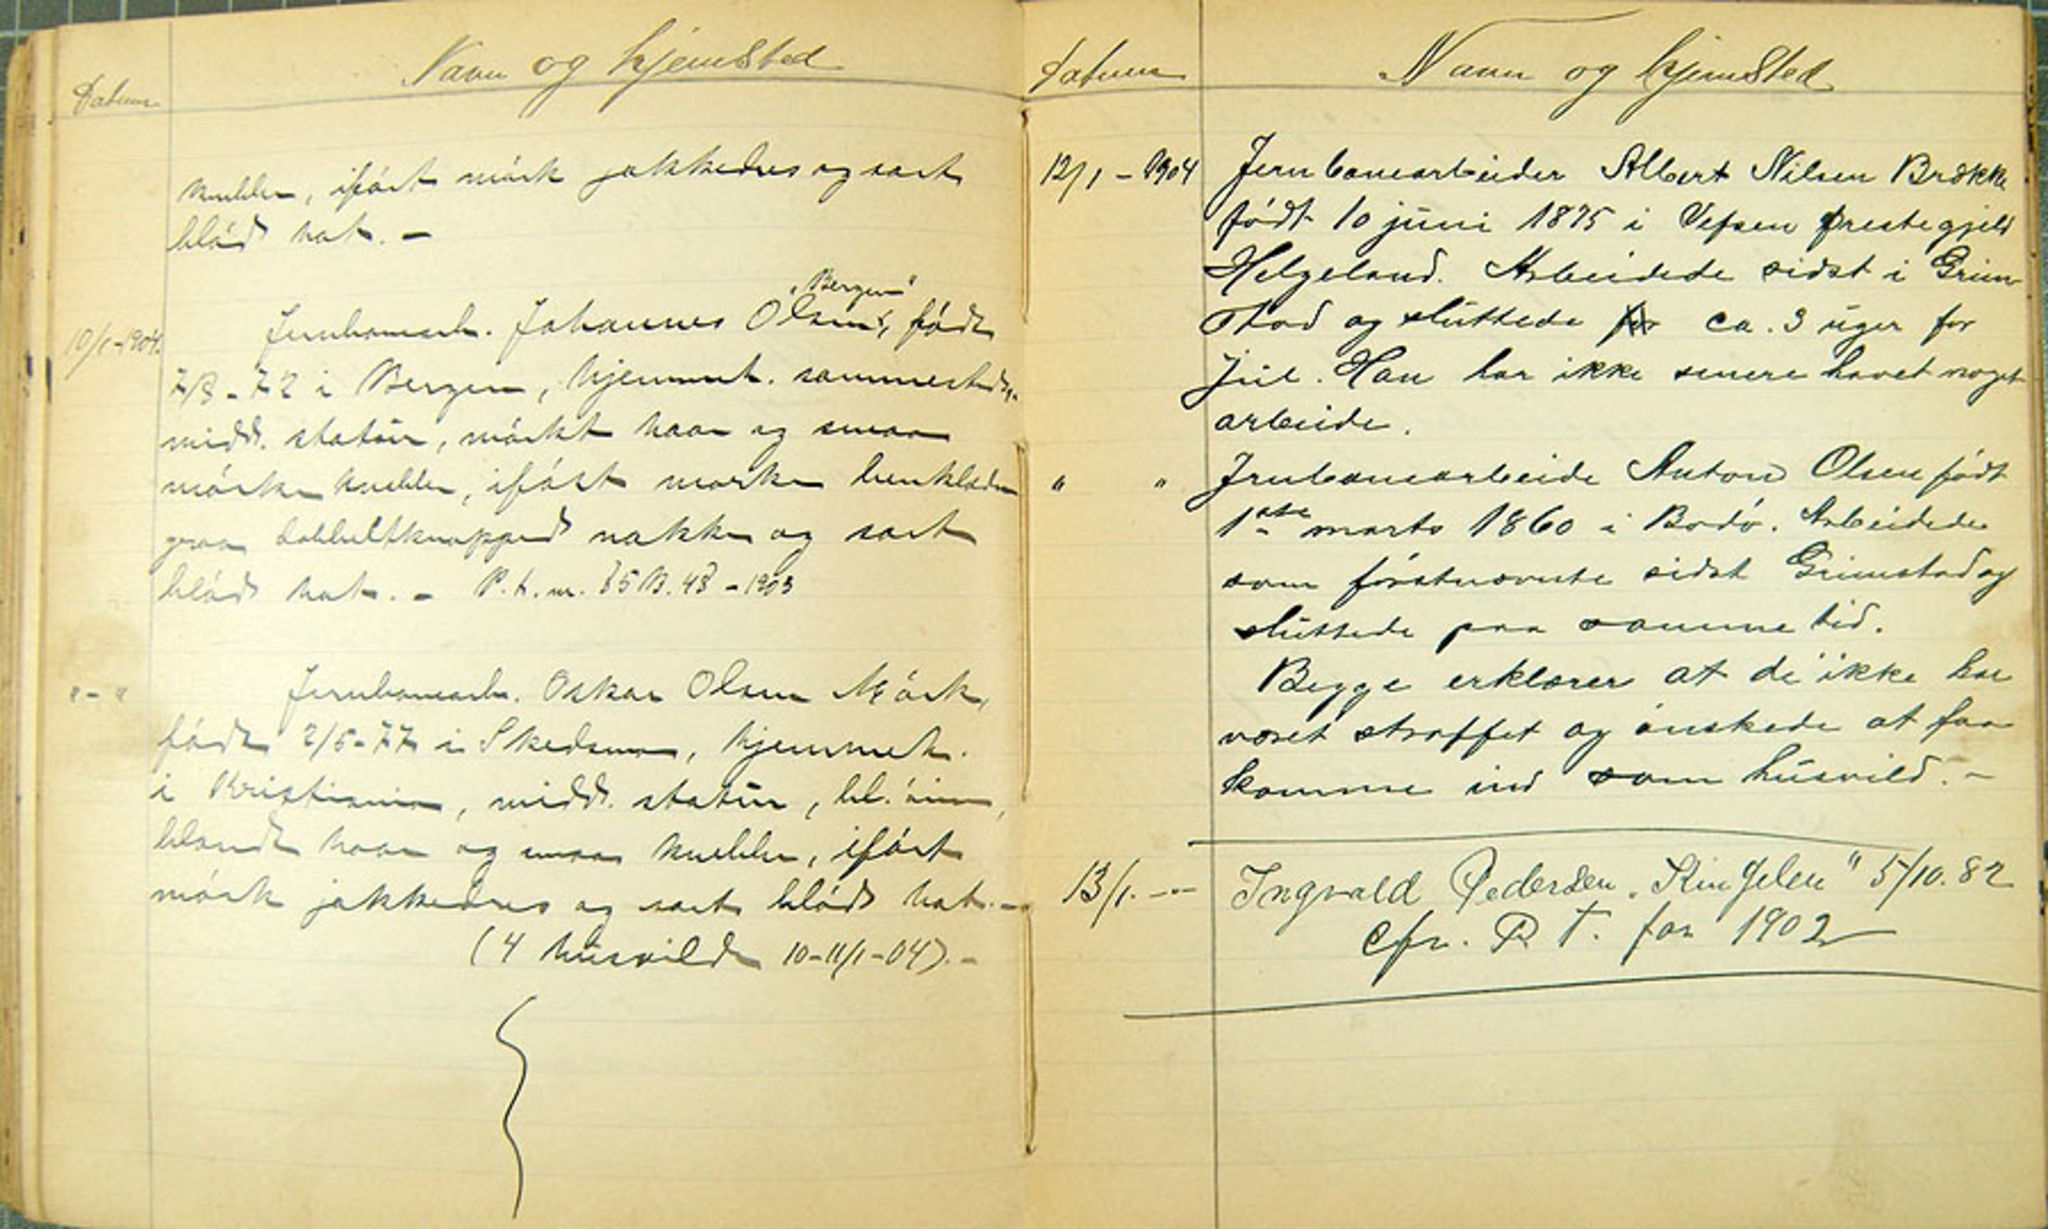 Datum
Navn og hjemsted
knebler, iført mörk jakkedres og sort
blöd hat. —
10/1-1904.
"Bergen"
Jernbanearb. Johannes Olsen, födt
7/8-72 i Bergen, hjemmeh. sammesteds,
midd. statür, mörkt haar og smaa
mörke knebler, ifört mörke benklæder
graa dobbeltknapped jakke og sort
blöd hat. — P. t. nr. 85 B. 48 - 1903
"-"
Jernbanearb. Oskar Olsen Mörk,
födt 2/5-77 i Skedsmo, hjemmeh.
i Kristiania, midd. statür, bl. öine,
blondt haar og smaa knebler, ifört
mörk jakkedres og sort blöd hat. —
(4 husvilde 10-11/1-04). —
Datum
Navn og hjemsted
12/1 - 1904
Jernbanearbeider Albert Nilsen Brække
födt 10 juni 1875 i Vefsen prestegjeld
Helgeland. Arbeidede sidst i Grim-
stad og sluttede ca. 3 uger før
jul. Han har ikke senere havet noget
arbeide.
" "
Jrnbanearbeide Anton Olsen födt
1ste marts 1860 i Bodö. Arbeidede
som förstnævnte sidst Grimstad og
sluttede paa samme tid.
Begge erklærer at de ikke har
været straffet og önskede at faa
komme ind som husvild. —
13/1. -"-
Ingvald Pedersen "Kingelen" 5/10. 82
cfr. P. T. for 1902